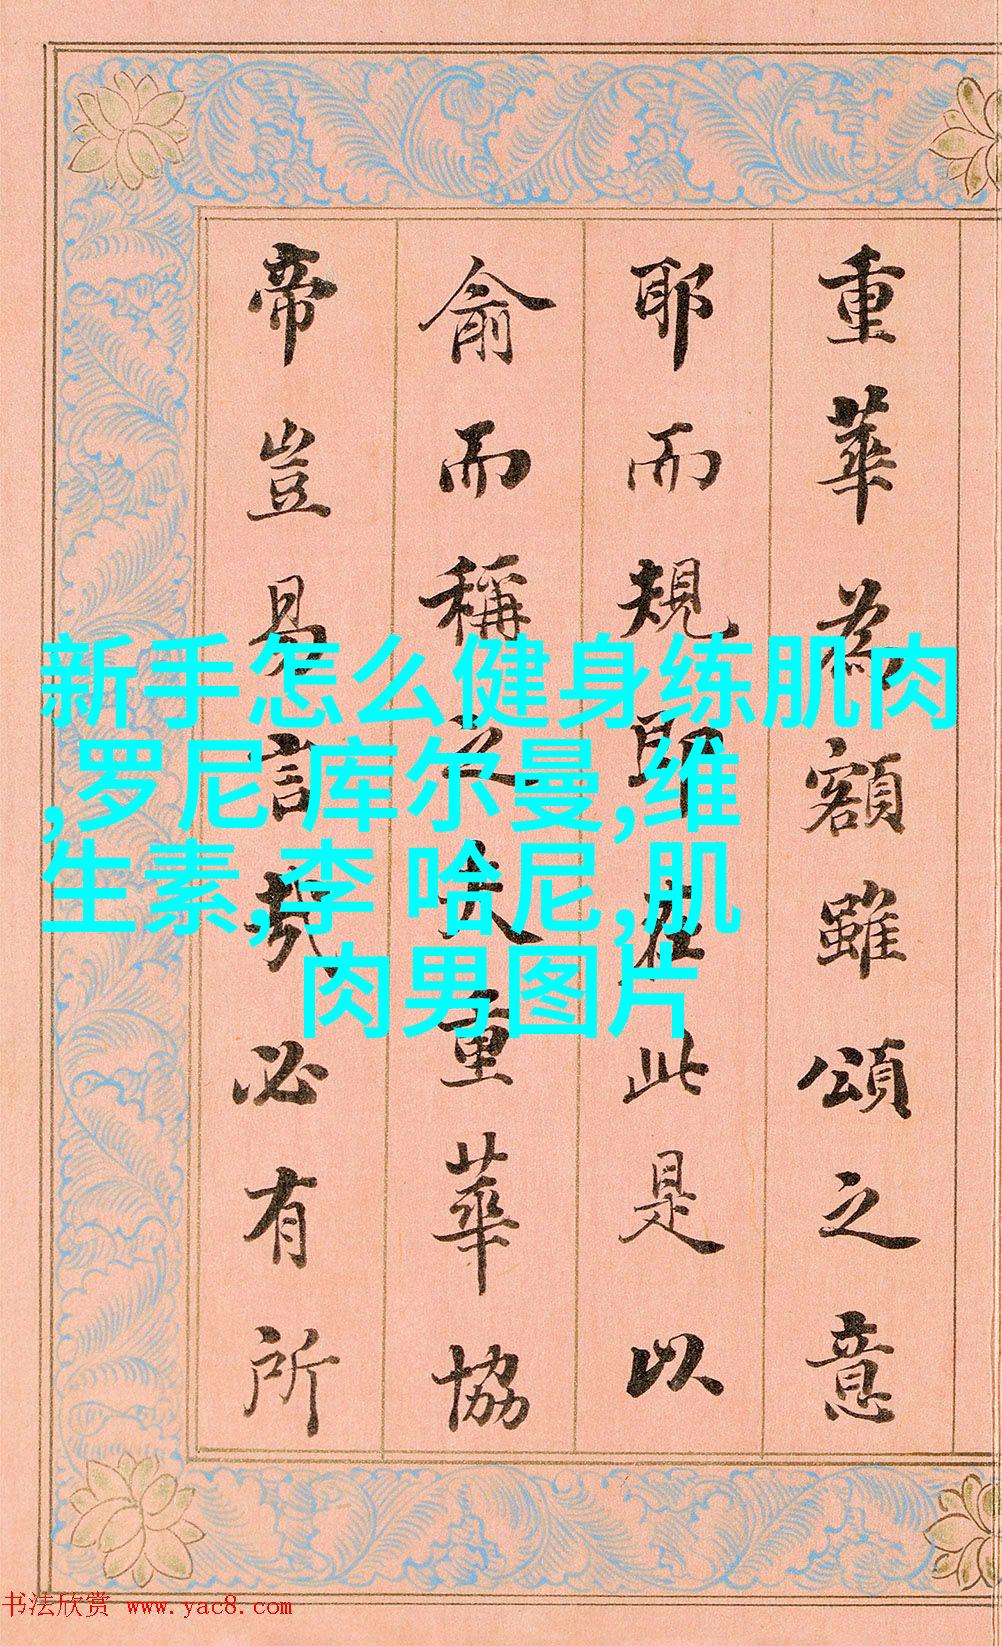 重華為額雖頌之意
耶而規即在此是以
俞而稱之夫重華協
帝豈易言哉必有所
新手怎么健身练肌肉
,罗尼 库尔曼,维
生素,李 哈尼,肌
肉男图片
书法欣赏 www.yac8.com